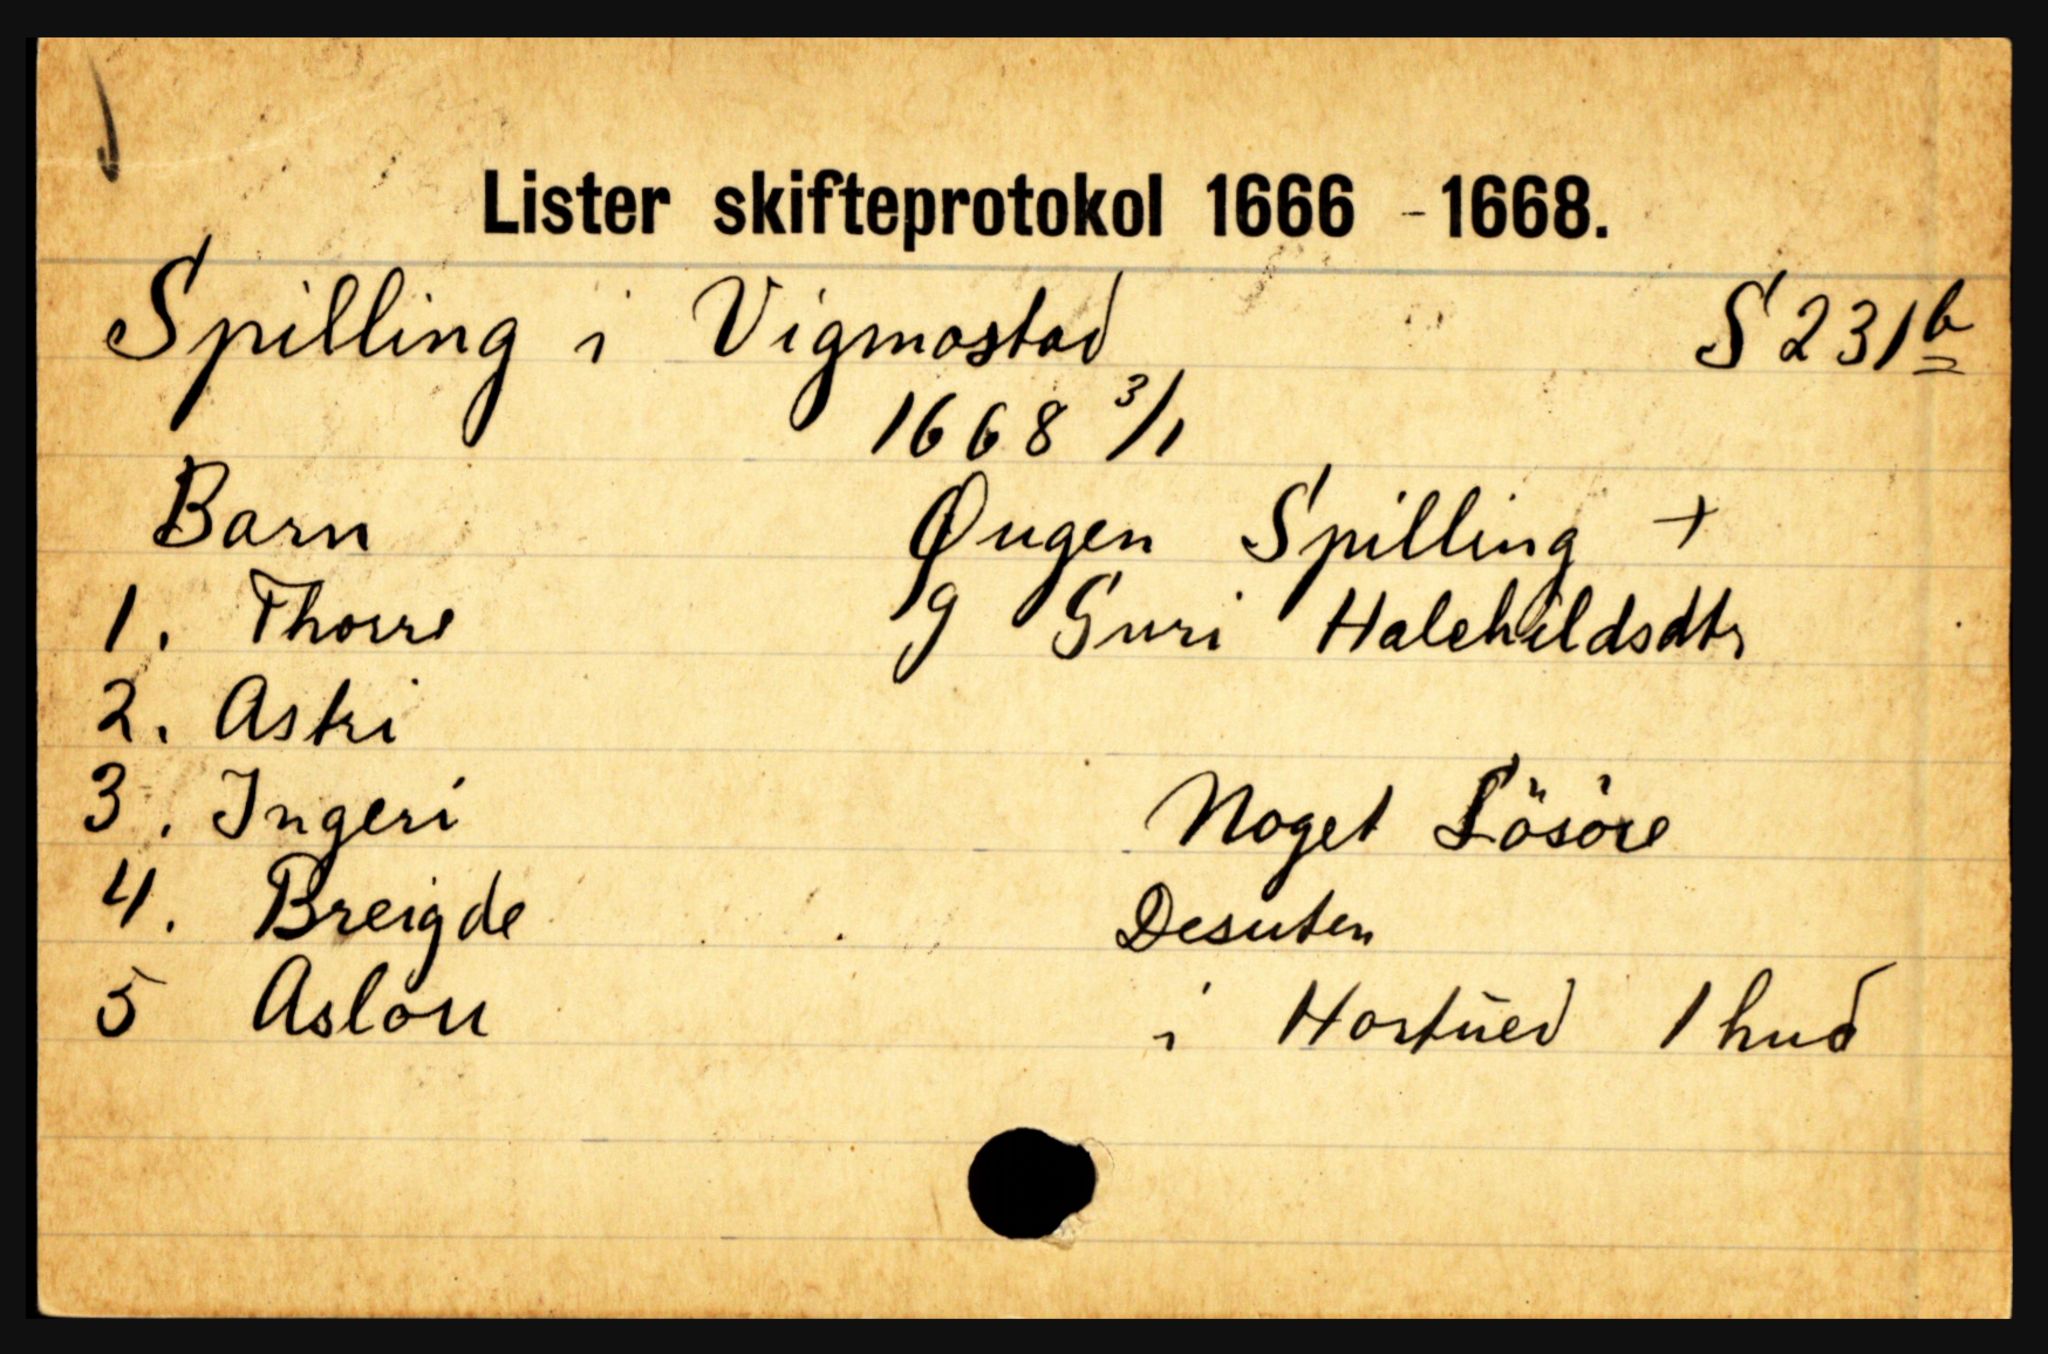 Lister skifteprotokol 1666 - 1668.
Spilling i Vigmostad S 231 b
1668 3/1
Barn Øugen Spilling +
1. Thorre g Guri Halehildsdtr
2. Astri
3. Ingeri Noget Lösöre
4. Breigde Desuten
5 Aslou i Hortued 1 hud